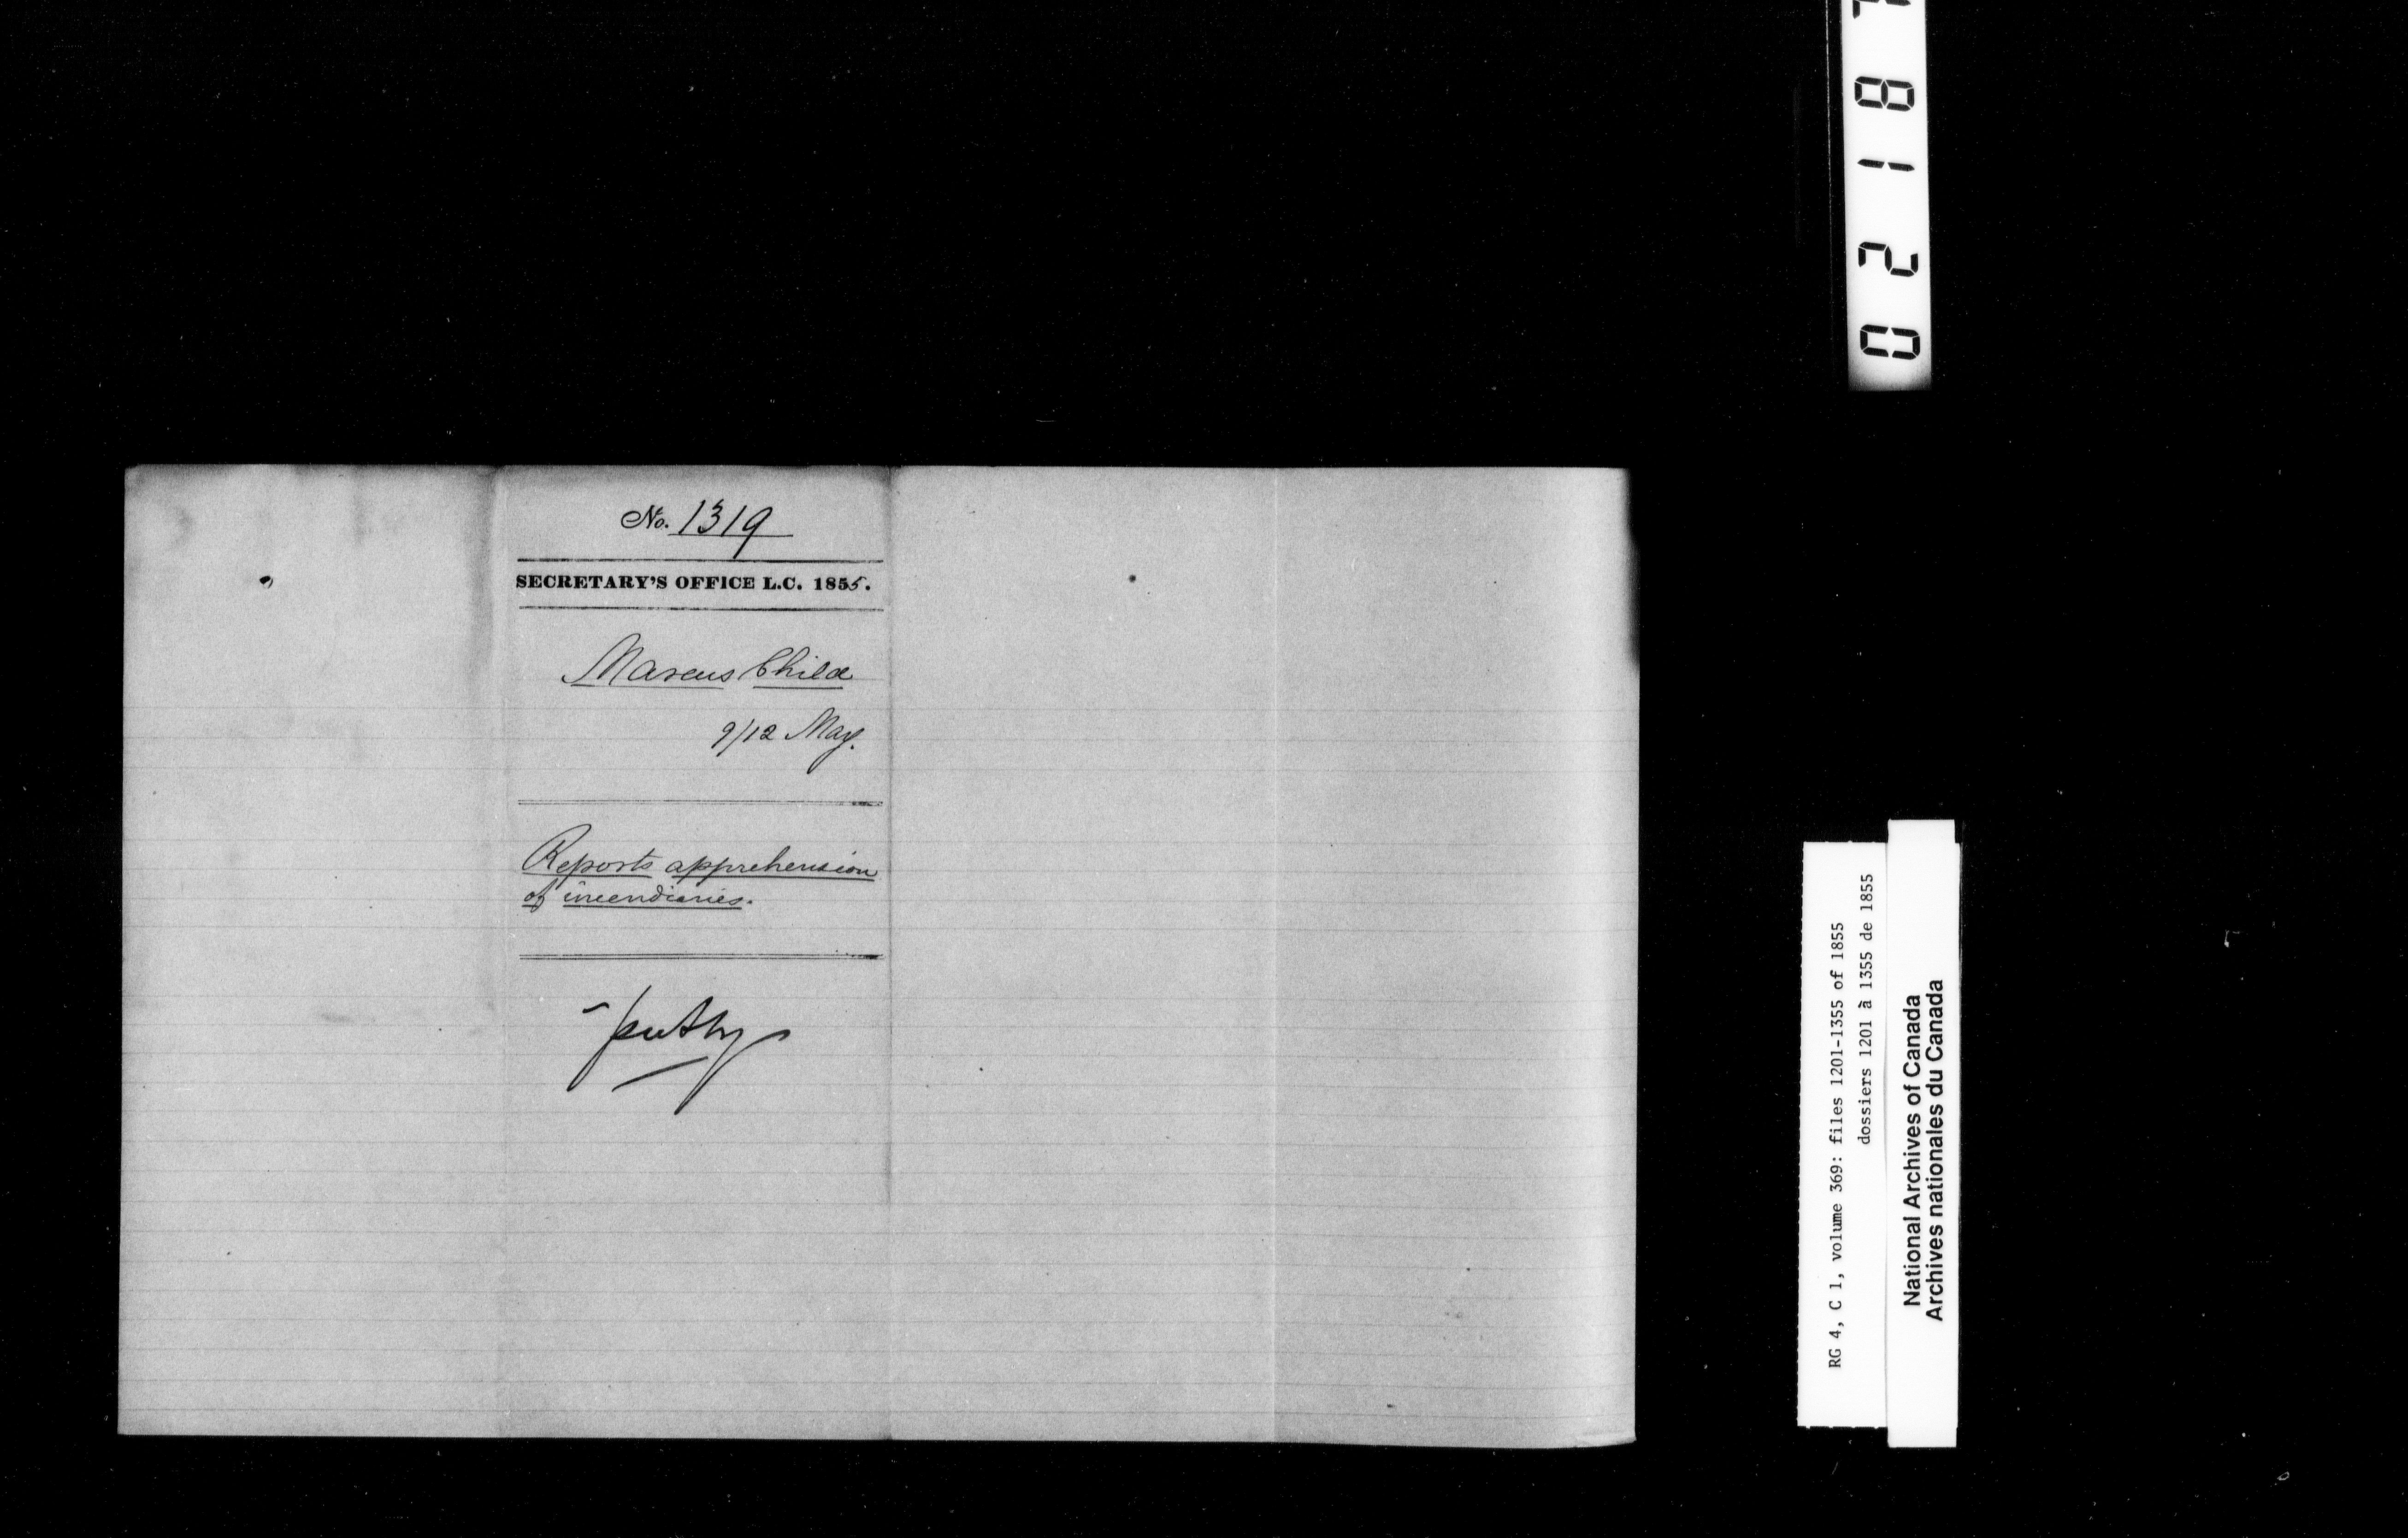 No. 1319
SECRETARY'S OFFICE L.C. 1855.
Marcus Child
9/12 May.
Reports apprehension
of incendiaries.
0218
RG 4, C 1, volume 369: files 1201-1355 of 1855
dossiers 1201 à 1355 de 1855
National Archives of Canada
Archives nationales du Canada